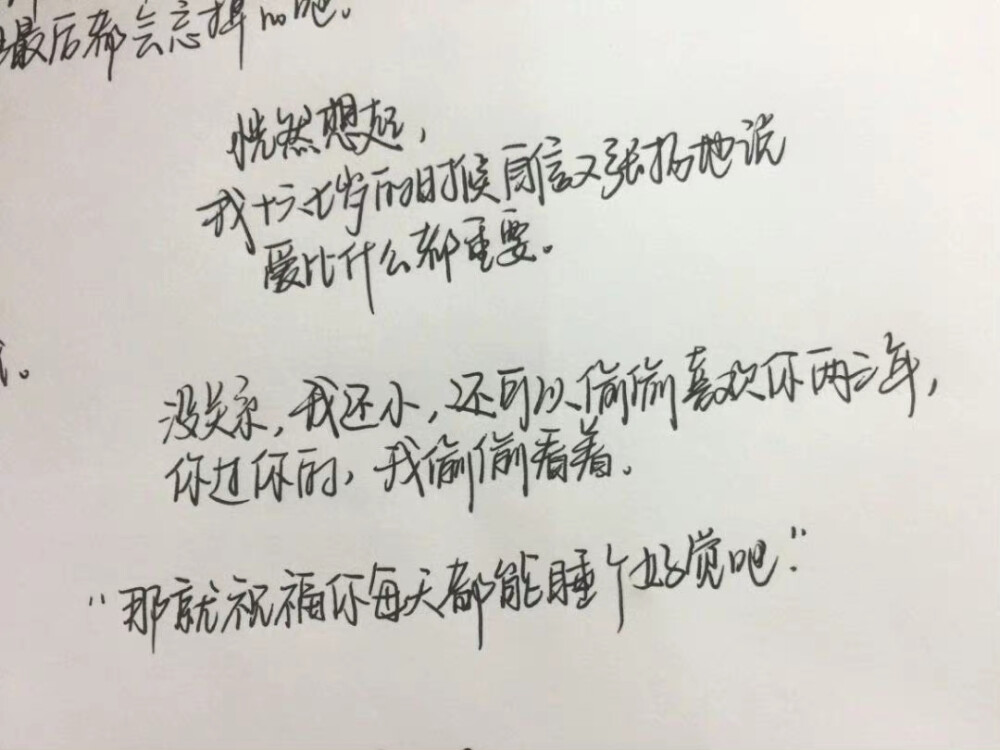 最后都会忘掉的吧。
恍然想起，
我十六七岁的时候自信又张扬地说
爱比什么都重要。
没关系，我还小，还可以偷偷喜欢你两三年，
你过你的，我偷偷看着。
“那就祝福你每天都能睡个好觉吧.”